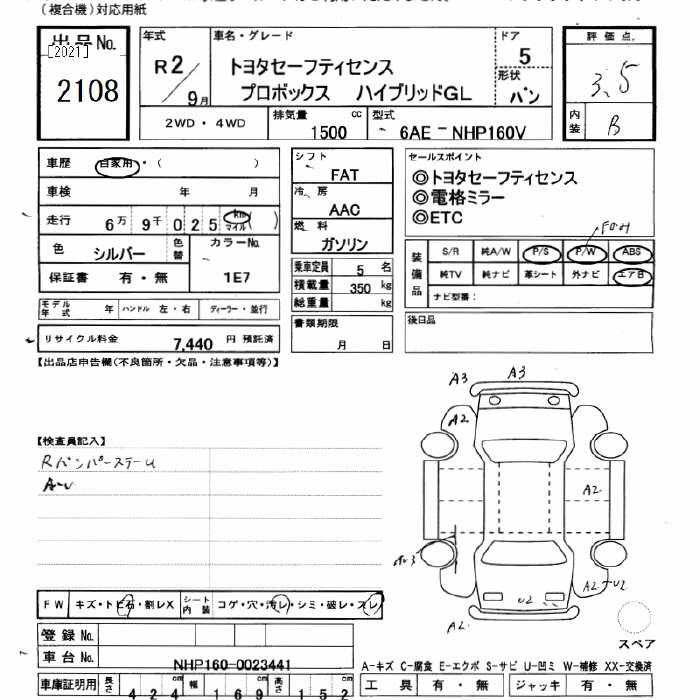 (複合機)対応用紙
出品No.
[2021]
2108
年式
R2/9月
車名・グレード
トヨタセーフティセンス
プロボックス ハイブリッドGL
ドア
5
形状
バン
評価点
3.5
内装
B
2WD・4WD
排気量
1500 cc
型式
6AE-NHP160V
車歴 自家用・( )
車検 年 月
走行 6万9千025 km マイル ( )
色 シルバー 色替 カラーNo.
保証書 有・無 1E7
モデル年式 年 ハンドル 左・右 ディーラー・並行
リサイクル料金 7,440 円 預託済
シフト
FAT
冷房
AAC
燃料
ガソリン
乗車定員 5 名
積載量 350 kg
総重量 kg
書類期限
月 日
セールスポイント
◎トヨタセーフティセンス
◎電格ミラー
◎ETC
装備品
S/R 純A/W P/S P/W ABS
純TV 純ナビ 革シート 外ナビ エアB
ナビ型番:
後日品
【出品店申告欄(不良箇所・欠品・注意事項等)】
【検査員記入】
RバンパーステーU
A-U
A3 A3
A2
A2
A2 U2
U2
A2
スペア
FW キズ・トビ石・割レX シート内装 コゲ・穴・汚レ・シミ・破レ・スレ
登録No.
車台No. NHP160-0023441
車庫証明用 長さ 424 cm 幅 169 cm 高さ 152 cm
A-キズ C-腐食 E-エクボ S-サビ U-凹ミ W-補修 XX-交換済
工具 有・無 ジャッキ 有・無